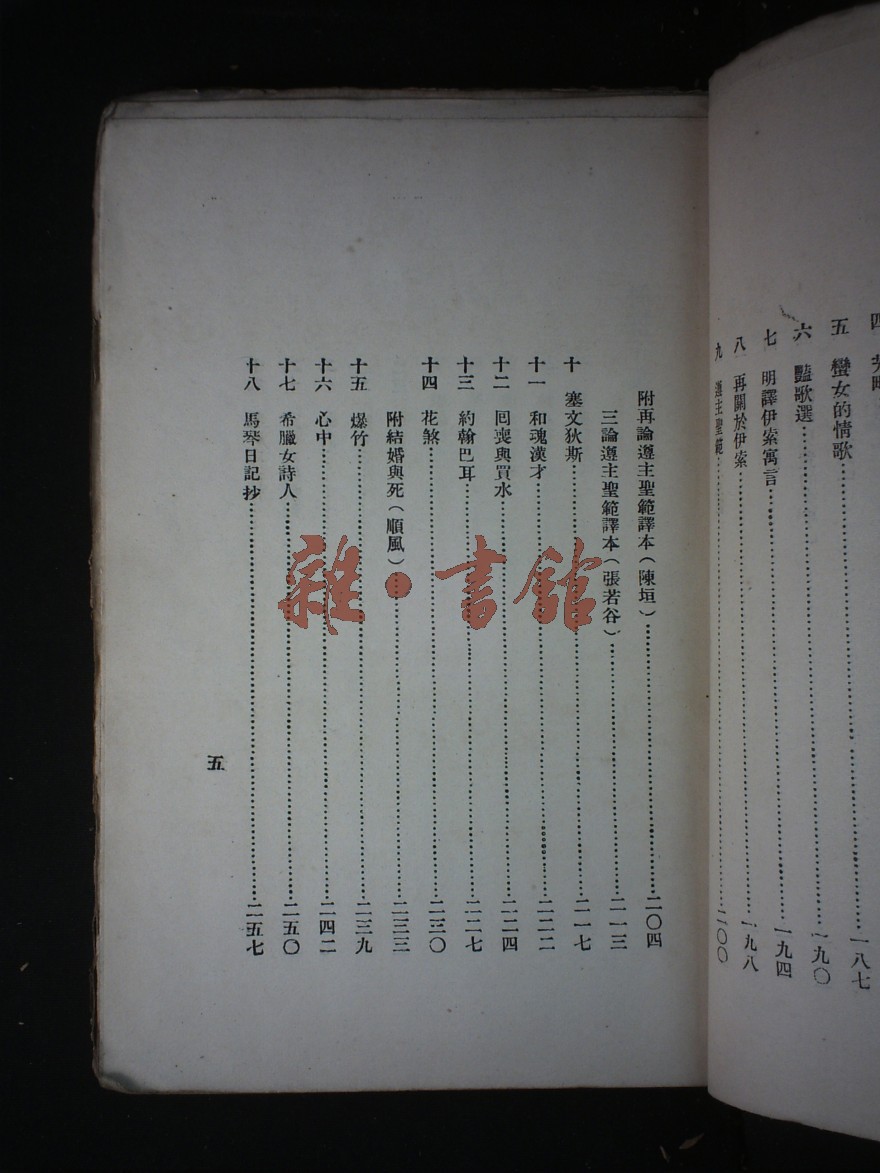 四
五　蠻女的情歌……一八七
六　豔歌選……一九〇
七　明譯伊索寓言……一九四
八　再關於伊索……一九八
九　遵主聖範……二〇〇
附再論遵主聖範譯本（陳垣）……二〇四
三論遵主聖範譯本（張若谷）……二一三
十　塞文狄斯……二一七
十一　和魂漢才……二二二
十二　回喪與買水……二二四
十三　約翰巴耳……二二七
十四　花煞……二三〇
附結婚與死（順風）……二三三
十五　爆竹……二三九
十六　心中……二四二
十七　希臘女詩人……二五〇
十八　馬琴日記抄……二五七
五
雜·書館